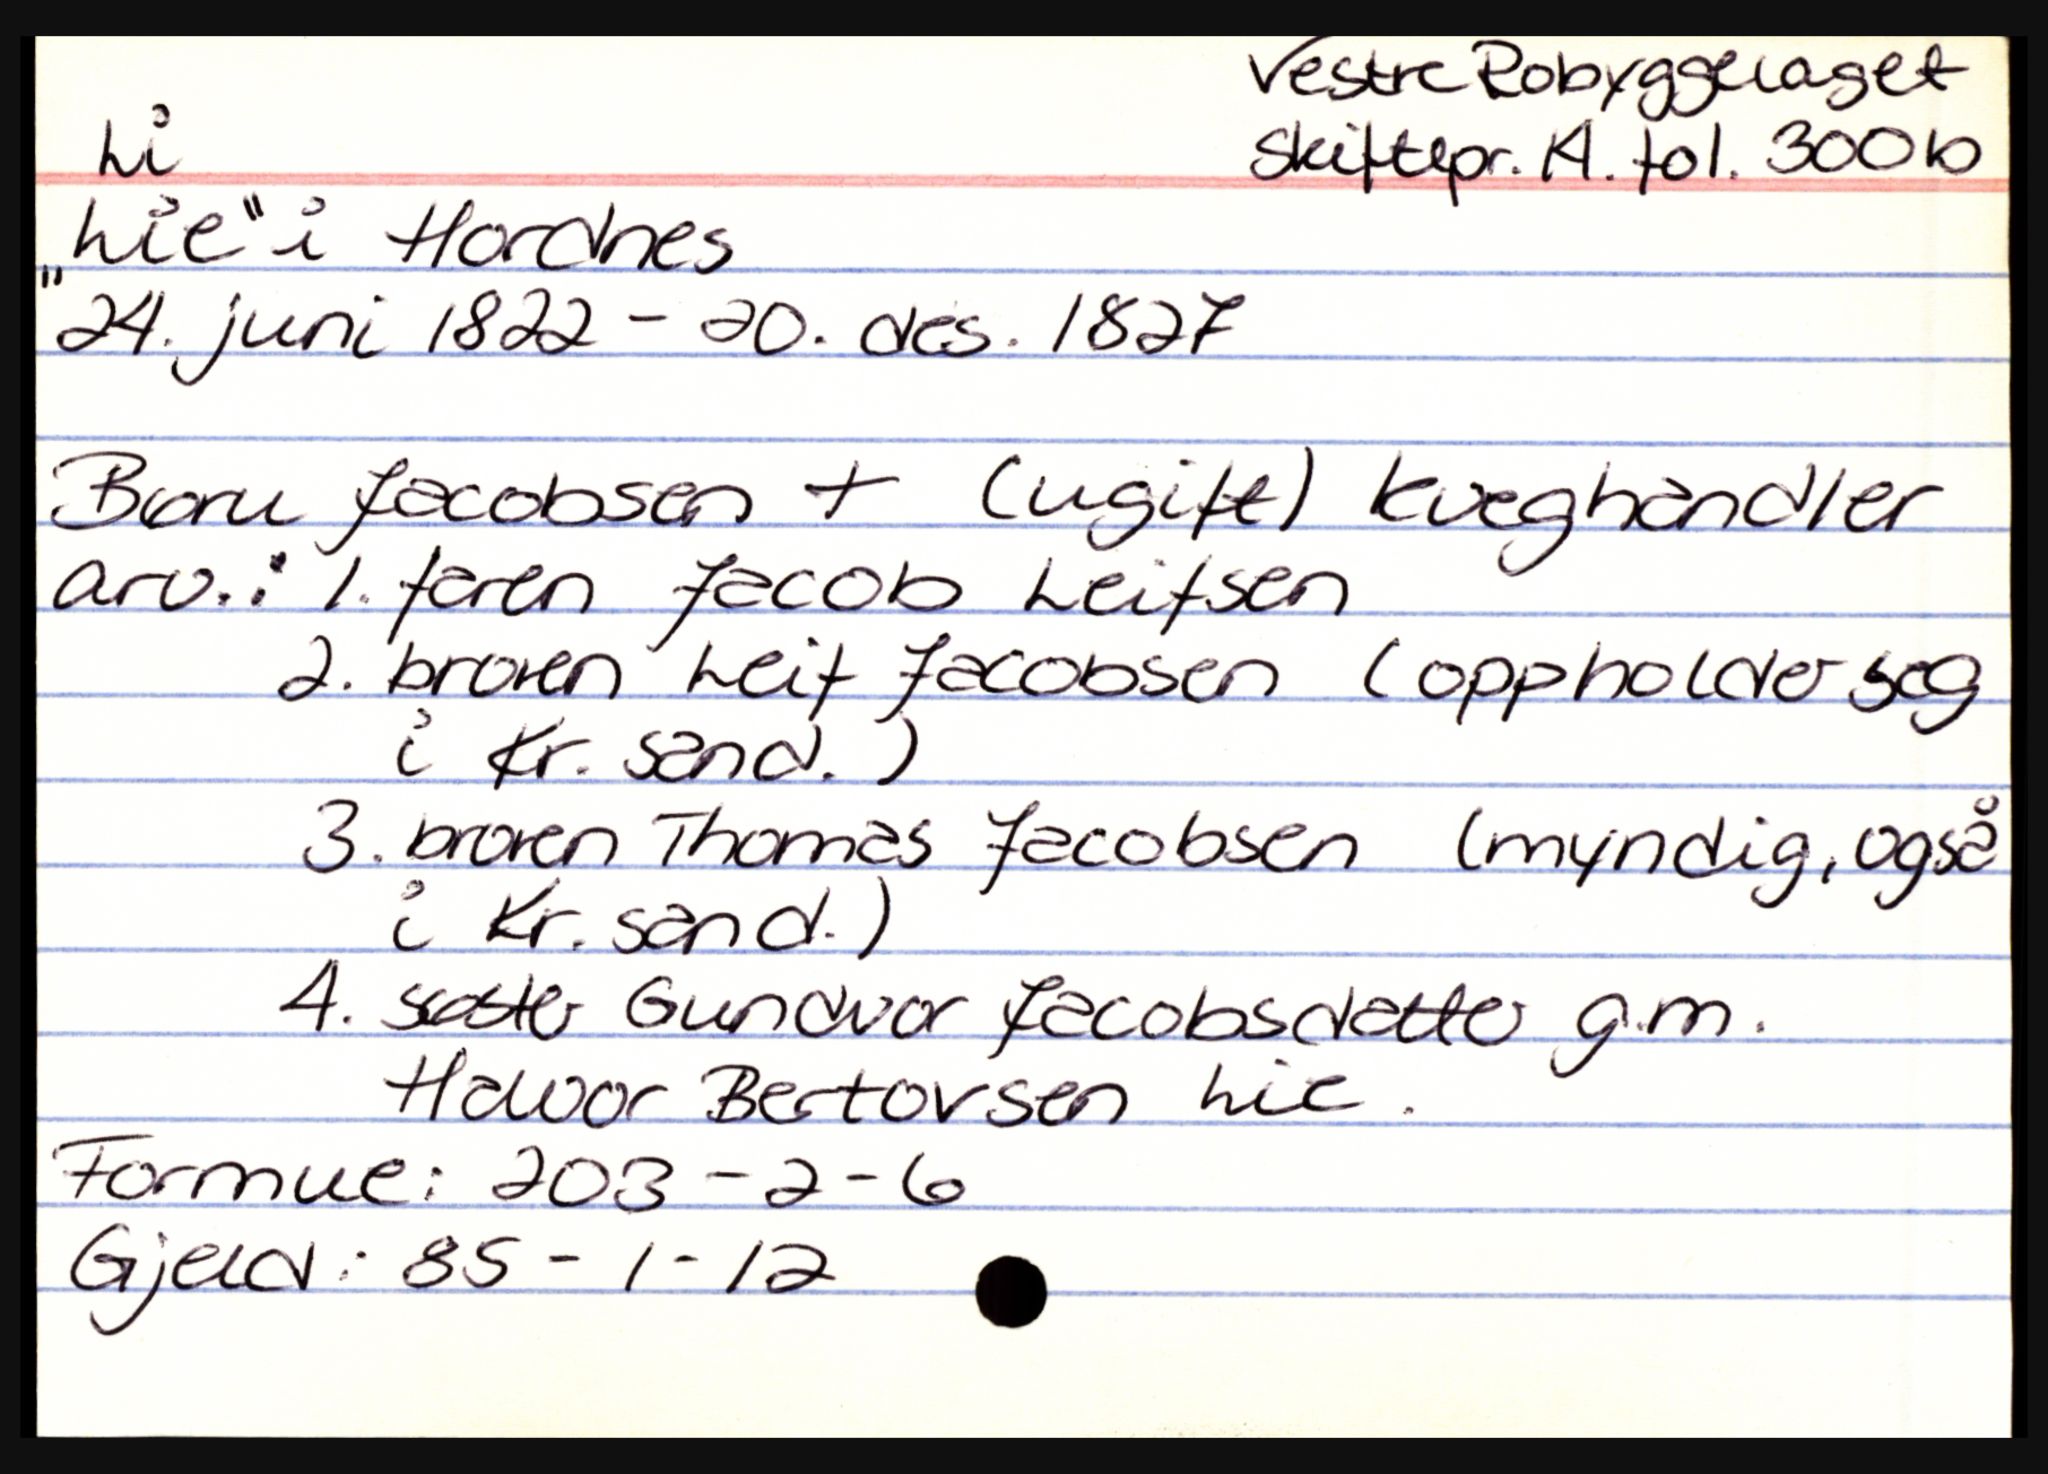 Vestre Robyggelaget
Li
Skiftepr. 14. fol. 300b
„Lie" i Hordnes
24. juni 1822 - 20. des. 1827
Bioru Jacobsen + (ugift) kveghandler
arv.: 1. faren Jacob Leifsen
2. broren Leif Jacobsen (oppholder seg
i Kr. sand.)
3. broren Thomas Jacobsen (myndig, også
i Kr. sand.)
4. søster Gundvor Jacobsdatter g.m.
Halvor Bertovsen Lie.
Formue: 203 - 2 - 6
Gjeld: 85 - 1 - 12